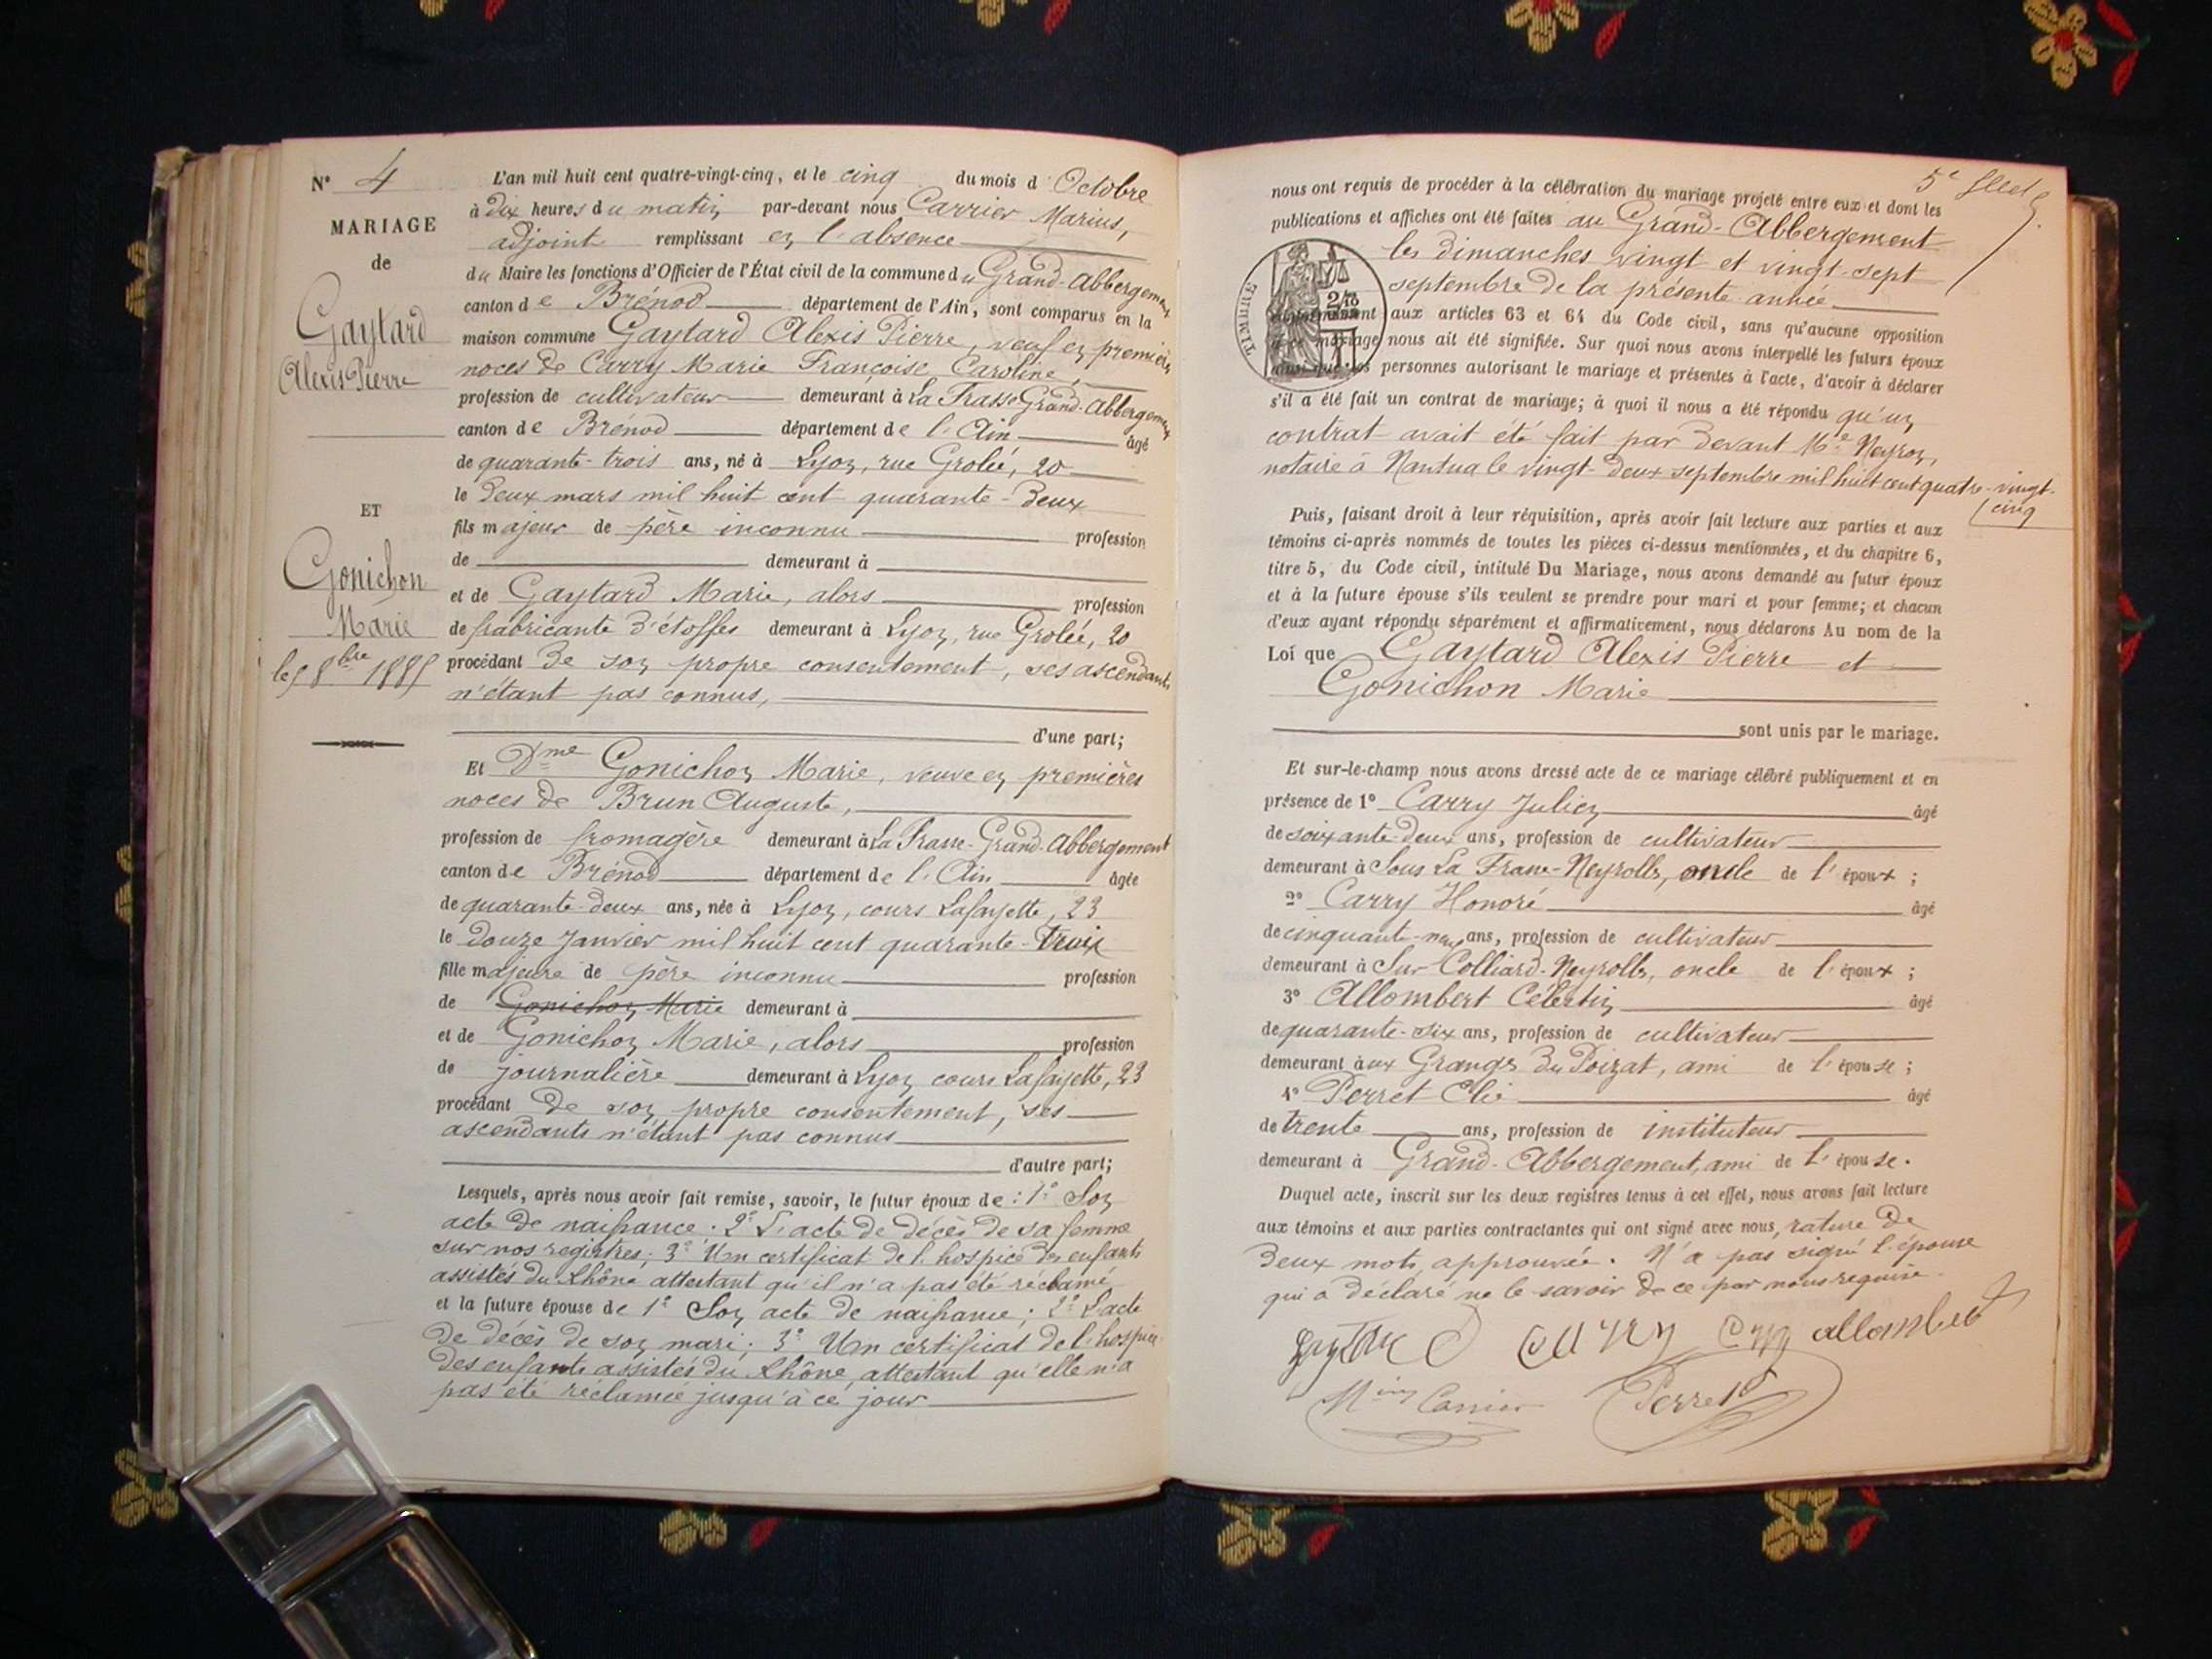 N° 4
MARIAGE
de
Gaytard
Alexis Pierre
ET
Gonichon
Marie
le 5 8bre 1885
L'an mil huit cent quatre-vingt-cinq, et le cinq du mois d'Octobre
à dix heures du matin par-devant nous Carrier Marius,
adjoint remplissant en l'absence
du Maire les fonctions d'Officier de l'État civil de la commune du Grand-Abbergement
canton de Brénod département de l'Ain, sont comparus en la
maison commune Gaytard Alexis Pierre, veuf en premières
noces de Carry Marie Françoise Caroline,
profession de cultivateur demeurant à La Frasse Grand-Abbergement
canton de Brénod département de l'Ain âgé
de quarante-trois ans, né à Lyon, rue Grolée, 20
le deux mars mil huit cent quarante-deux
fils majeur de père inconnu profession
de demeurant à
et de Gaytard Marie, alors profession
de fabricante d'étoffes demeurant à Lyon, rue Grolée, 20
procédant de son propre consentement, ses ascendants
n'étant pas connus,
d'une part;
Et Dme Gonichon Marie, veuve en premières
noces de Brun Auguste,
profession de fromagère demeurant à La Frasse-Grand-Abbergement
canton de Brénod département de l'Ain âgée
de quarante-deux ans, née à Lyon, cours Lafayette, 23
le douze Janvier mil huit cent quarante-trois
fille majeure de père inconnu profession
de Gonichon Marie demeurant à
et de Gonichon Marie, alors profession
de journalière demeurant à Lyon cours Lafayette, 23
procédant de son propre consentement, ses
ascendants n'étant pas connus
d'autre part;
Lesquels, après nous avoir fait remise, savoir, le futur époux de : 1° Son
acte de naissance; 2° L'acte de décès de sa femme
sur nos registres; 3° Un certificat de l'hospice des enfants
assistés du Rhône attestant qu'il n'a pas été réclamé
et la future épouse de 1° Son acte de naissance; 2° L'acte
de décès de son mari; 3° Un certificat de l'hospice
des enfants assistés du Rhône, attestant qu'elle n'a
pas été réclamée jusqu'à ce jour
5e
nous ont requis de procéder à la célébration du mariage projeté entre eux et dont les
publications et affiches ont été faites au Grand-Abbergement
les dimanches vingt et vingt-sept
septembre de la présente année
TIMBRE
2/10
conformément aux articles 63 et 64 du Code civil, sans qu'aucune opposition
à ce mariage nous ait été signifiée. Sur quoi nous avons interpellé les futurs époux
ainsi que les personnes autorisant le mariage et présentes à l'acte, d'avoir à déclarer
s'il a été fait un contrat de mariage; à quoi il nous a été répondu qu'un
contrat avait été fait par devant Me Neyron,
notaire à Nantua le vingt-deux septembre mil huit cent quatre-vingt-
cinq
Puis, faisant droit à leur réquisition, après avoir fait lecture aux parties et aux
témoins ci-après nommés de toutes les pièces ci-dessus mentionnées, et du chapitre 6,
titre 5, du Code civil, intitulé Du Mariage, nous avons demandé au futur époux
et à la future épouse s'ils veulent se prendre pour mari et pour femme; et chacun
d'eux ayant répondu séparément et affirmativement, nous déclarons Au nom de la
Loi que Gaytard Alexis Pierre et
Gonichon Marie
sont unis par le mariage.
Et sur-le-champ nous avons dressé acte de ce mariage célébré publiquement et en
présence de 1° Carry Julien âgé
de soixante-deux ans, profession de cultivateur
demeurant à Sous La Frasse-Neyrolles, oncle de l'époux;
2° Carry Honoré âgé
de cinquante-neuf ans, profession de cultivateur
demeurant à Sur-Colliard-Neyrolles, oncle de l'époux;
3° Allombert Célestin âgé
de quarante-six ans, profession de cultivateur
demeurant aux Granges du Poizat, ami de l'épouse;
4° Perret Elie âgé
de trente ans, profession de instituteur
demeurant à Grand-Abbergement, ami de l'épouse.
Duquel acte, inscrit sur les deux registres tenus à cet effet, nous avons fait lecture
aux témoins et aux parties contractantes qui ont signé avec nous, rature de
deux mots, approuvée. N'a pas signé l'épouse
qui a déclaré ne le savoir de ce par nous requise.
gaytard Carry Cary allombert
Carrier Perret